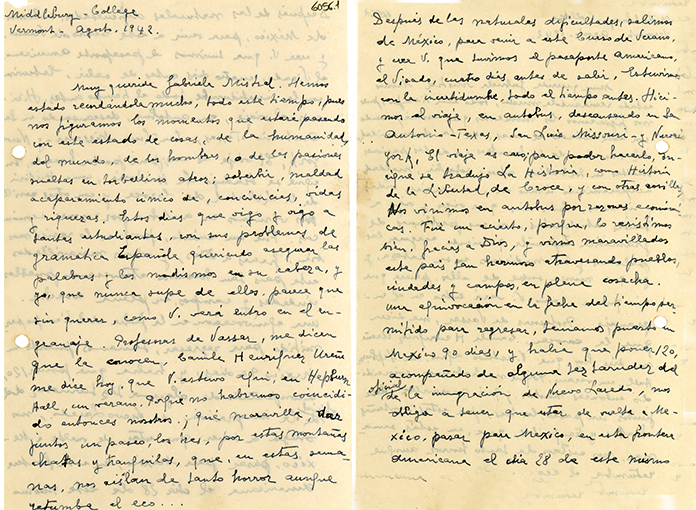 Middlebury - College
Vermont - Agosto, 1942.
6056.1
Muy querida Gabriela Mistral. Hemos
estado recordándola mucho, todo este tiempo, pues
nos figuramos los momentos que estará pasando
con este estado de cosas, de la humanidad,
del mundo, de los hombres, o de las pasiones
sueltas en torbellino atroz; soberbia, maldad
acaparamiento único de, conciencias, vidas
y riquezas. Estos días que oigo y oigo a
tantas estudiantes, con sus problemas de
gramática Española queriendo asegurar las
palabras y los modismos en su cabeza, y
yo, que nunca supe de ellos, parece que
sin querer, como V. verá entro en el en-
granaje. Profesoras de Vassar, me dicen
que la conocen, Camila Henriquez Ureña
me dice hoy, que V. estuvo aquí, en Hepburn
Hall, un verano. Porqué no habremos coincidi-
do entonces nosotros! ¡qué maravilla dar
juntos un paseo, los tres, por estas montañas
chatas y tranquilas, que, en estas sema-
nas, nos aislan de tanto horror aunque
retumbe el eco...
Después de las naturales dificultades, salimos
de México, para venir a este Curso de Verano,
y crea V. que tuvimos el pasaporte Americano,
el Visado, cuatro días antes de salir, Estuvimos
con la incertidumbre, todo el tiempo antes. Hici-
mos el viaje, en autobus, descansando en San
Antonio - Texas, San Luis Missouri - y Nueva
York, El viaje es caro; para poder hacerlo, En-
rique se tradujo La Historia, como Historia
de la Libertad, de Croce, y con otras cosillas,
Nos vinimos en autobus por razones económi-
cas. Fué un acierto, porque, lo resistimos
bien, gracias a Dios, y vimos maravillados
este país tan hermoso atravesando pueblos,
ciudades y campos, en plena cosecha.
Una equivocación en la fecha del tiempo per-
mitido para regresar, teníamos puerto en
México 90 días, y había que poner 120,
acompañado de alguna testarudez del
oficial de la inmigración de Nuevo Laredo, nos
obliga a tener que estar de vuelta a Mé-
xico, pasar para México, en esta frontera
Americana el día 28 de este mismo